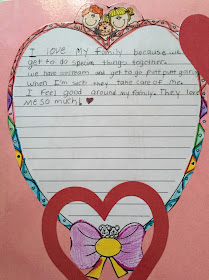 I love My family because we
get to do special things together.
we have icecream and get to go putt putt golfing.
When I'm sick they take care of me.
I feel good around my family. They love
me so much! ♥